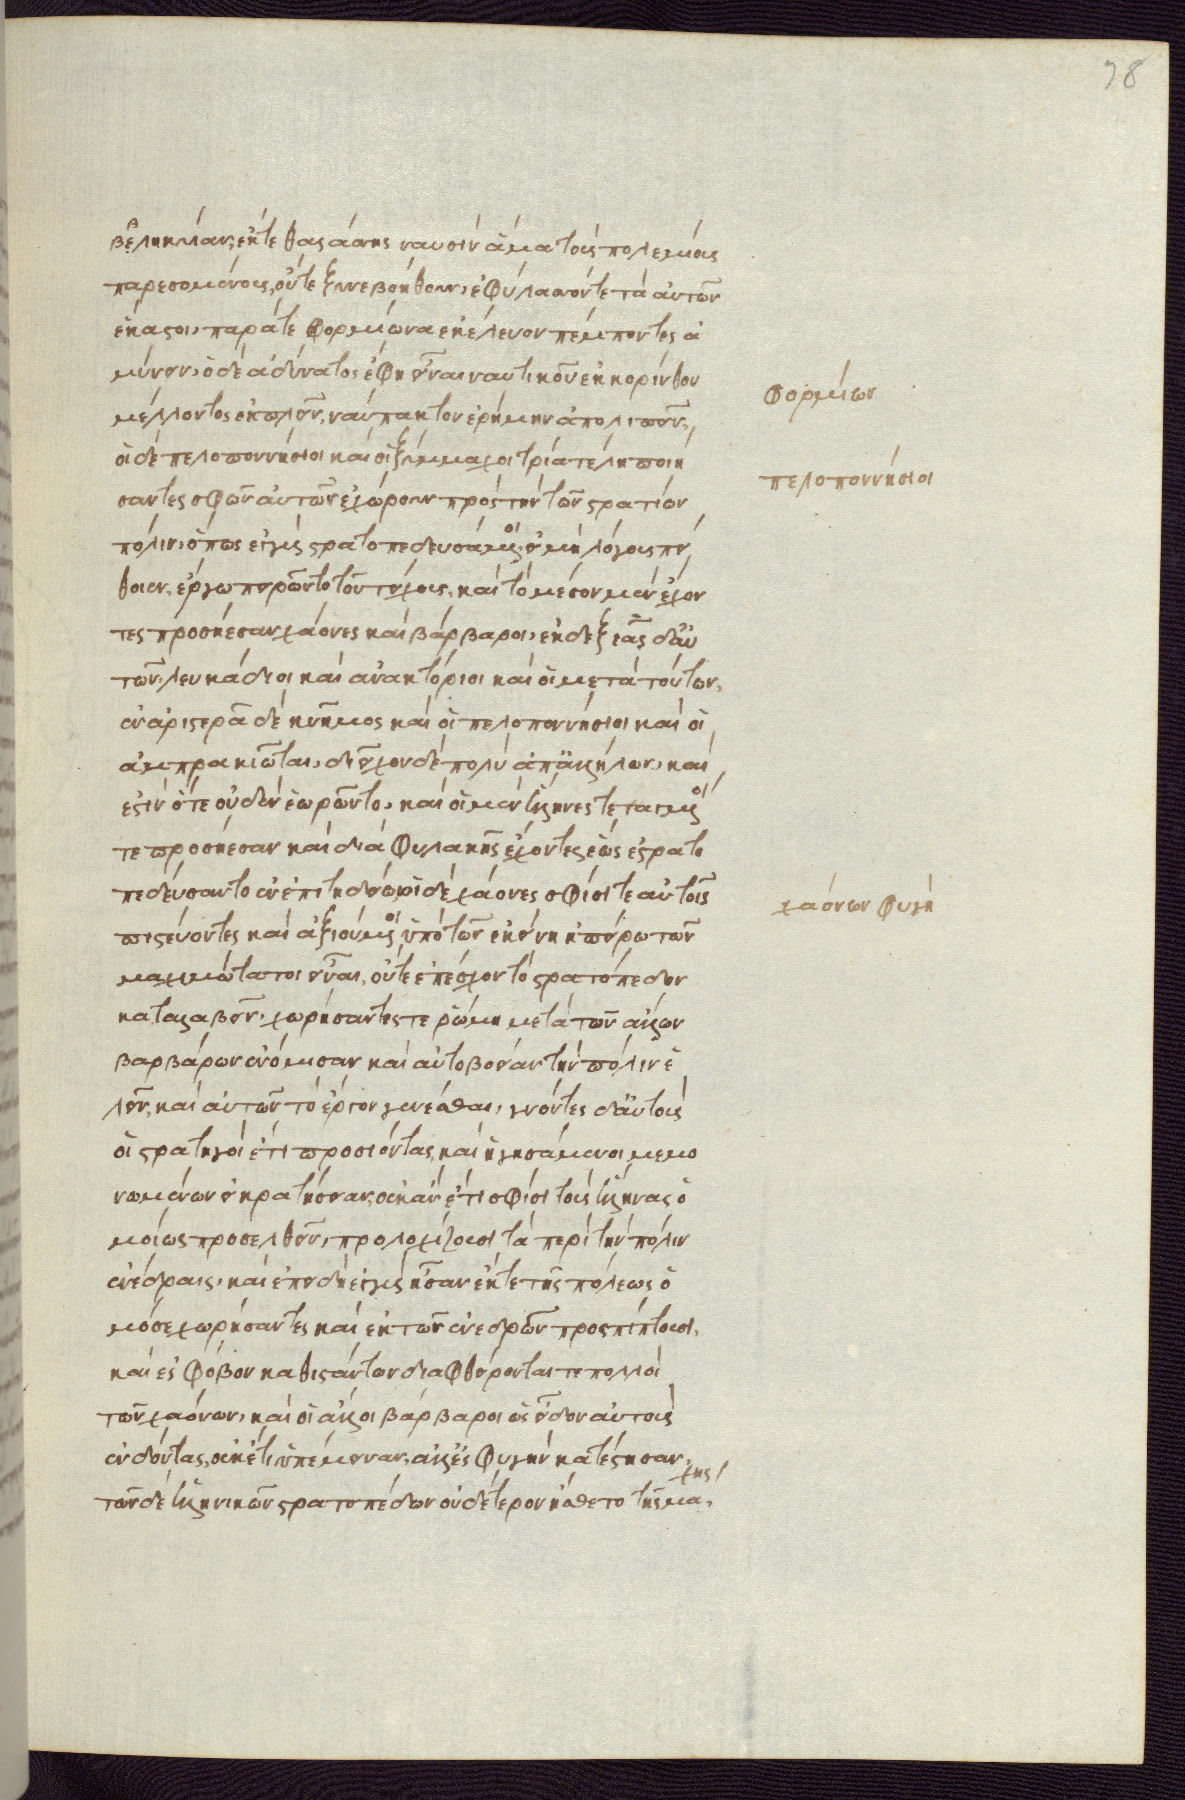 78
βεληκυῖαν, ἔκ τε θαλάσσης ναυσὶν ἅμα τοὺς πολεμίους
παρεσομένους, οὔτε ξυνεβοήθουν, ἐφύλασσόν τε τὰ αὑτῶν
ἕκαστοι, παρά τε φορμίωνα ἐκέλευον πέμποντες ἀ
μύνειν, ὁ δὲ ἀδύνατος ἔφη εἶναι ναυτικοῦ ἐκ κορίνθου
μέλλοντος ἐκπλεῖν, ναύπακτον ἐρήμην ἀπολιπεῖν,
φορμίων
οἱ δὲ πελοποννήσιοι καὶ οἱ ξύμμαχοι τρία τέλη ποιή
πελοποννήσιοι
σαντες σφῶν αὐτῶν ἐχώρουν πρὸς τὴν τῶν στρατίων
πόλιν, ὅπως ἐγγὺς στρατοπεδευσάμενοι, εἰ μὴ λόγοις πεί
θοιεν, ἔργω πειρῶντο τοῦ τείχους, καὶ τὸ μέσον μὲν ἔχον
τες προσήεσαν χάονες καὶ βάρβαροι, ἐκ δεξιᾶς δ' αὐ
τῶν, λευκάδιοι καὶ ἀνακτόριοι καὶ οἱ μετὰ τούτων,
ἐν ἀριστερᾶ δὲ κνῆμος καὶ οἱ πελοποννήσιοι καὶ οἱ
ἀμπρακιῶται, διεῖχον δὲ πολὺ ἀπ' ἀλλήλων, καὶ
ἔστιν ὅτε οὐδὲν ἑωρῶντο, καὶ οἱ μὲν ἕλληνες τεταγμένοι
τε προσήεσαν καὶ διὰ φυλακῆς ἔχοντες, ἕως ἐστρατο
πεδεύσαντο ἐν ἐπιτηδείω, οἱ δὲ χάονες σφίσί τε αὐτοῖς
χαόνων φυγὴ
πιστεύοντες καὶ ἀξιούμενοι ὑπὸ τῶν ἐκείνη ἠπειρωτῶν
μαχιμώτατοι εἶναι, οὔτε ἐπέσχον τὸ στρατόπεδον
καταλαβεῖν, χωρήσαντές τε ῥώμη μετὰ τῶν ἄλλων
βαρβάρων ἐνόμισαν καὶ αὐτοβοεὶ ἂν τὴν πόλιν ἑ
λεῖν, καὶ αὐτῶν τὸ ἔργον γενέσθαι, γνόντες δ' αὐτοὺς
οἱ στρατηγοὶ ἔτι προσιόντας, καὶ ἡγησάμενοι μεμο
νωμένων εἰ κρατήσειαν, οὐκ ἂν ἔτι σφίσι τοὺς ἕλληνας ὁ
μοίως προσελθεῖν, προλοχίζουσι τὰ περὶ τὴν πόλιν
ἐνέδραις, καὶ ἐπειδὴ ἐγγὺς ἦσαν ἔκ τε τῆς πόλεως ὁ
μόσε χωρήσαντες καὶ ἐκ τῶν ἐνεδρῶν προσπίπτουσι,
καὶ ἐς φόβον καθιστάντων διαφθείρονταί τε πολλοὶ
τῶν χαόνων, καὶ οἱ ἄλλοι βάρβαροι ὡς εἶδον αὐτοὺς
ἐνδόντας, οὐκέτι ὑπέμειναν, ἀλλ' ἐς φυγὴν κατέστησαν,
τῶν δὲ ἑλληνικῶν στρατοπέδων οὐδέτερον ἤσθετο τῆς μά
χης